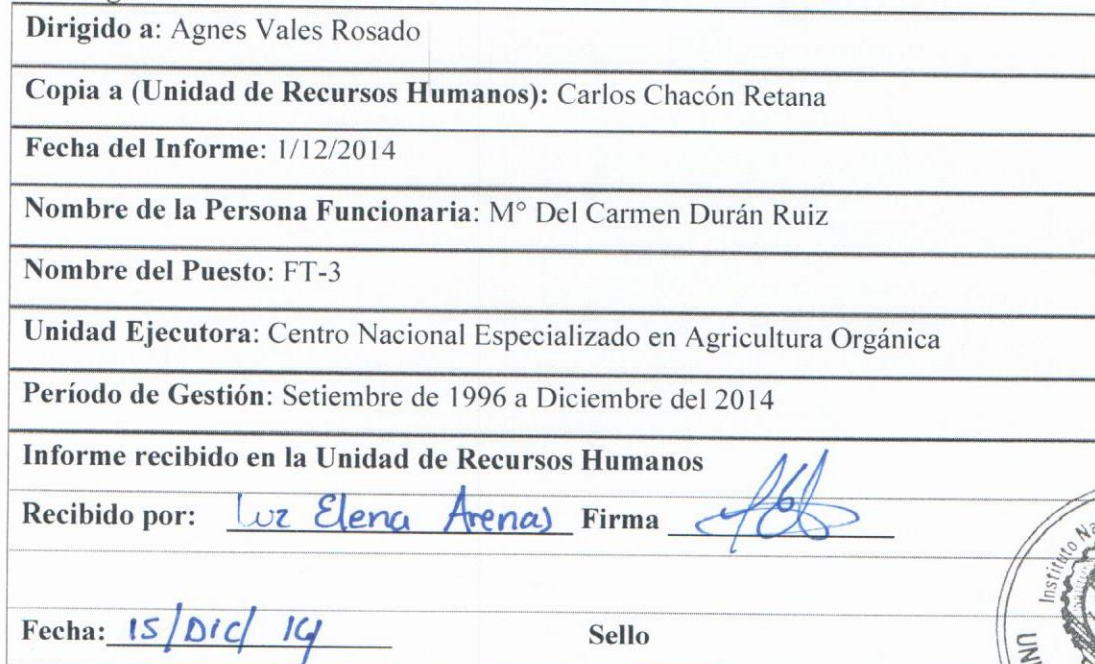 Dirigido a: Agnes Vales Rosado
Copia a (Unidad de Recursos Humanos): Carlos Chacón Retana
Fecha del Informe: 1/12/2014
Nombre de la Persona Funcionaria: M° Del Carmen Durán Ruiz
Nombre del Puesto: FT-3
Unidad Ejecutora: Centro Nacional Especializado en Agricultura Orgánica
Período de Gestión: Setiembre de 1996 a Diciembre del 2014
Informe recibido en la Unidad de Recursos Humanos
Recibido por: Luz Elena Arenas Firma
Fecha: 15/Dic/ 14 Sello
Instituto